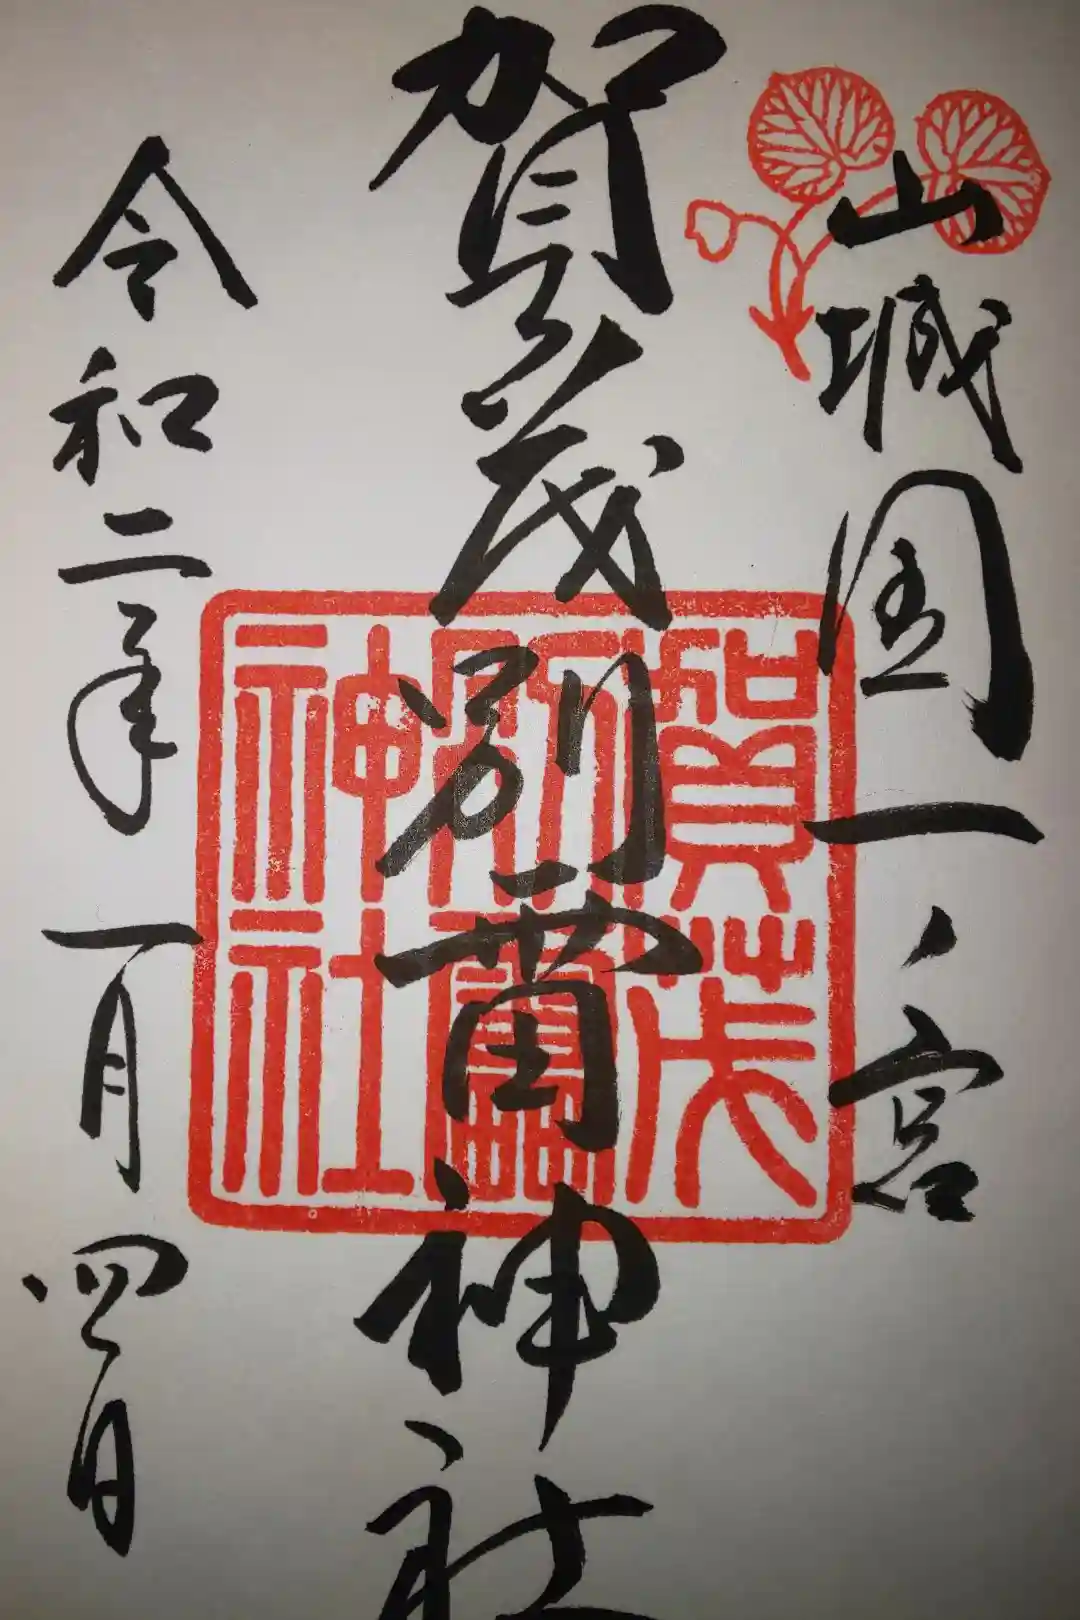 山城国一ノ宮
賀茂別雷神社
令和二年一月四日
賀茂
別雷
神社